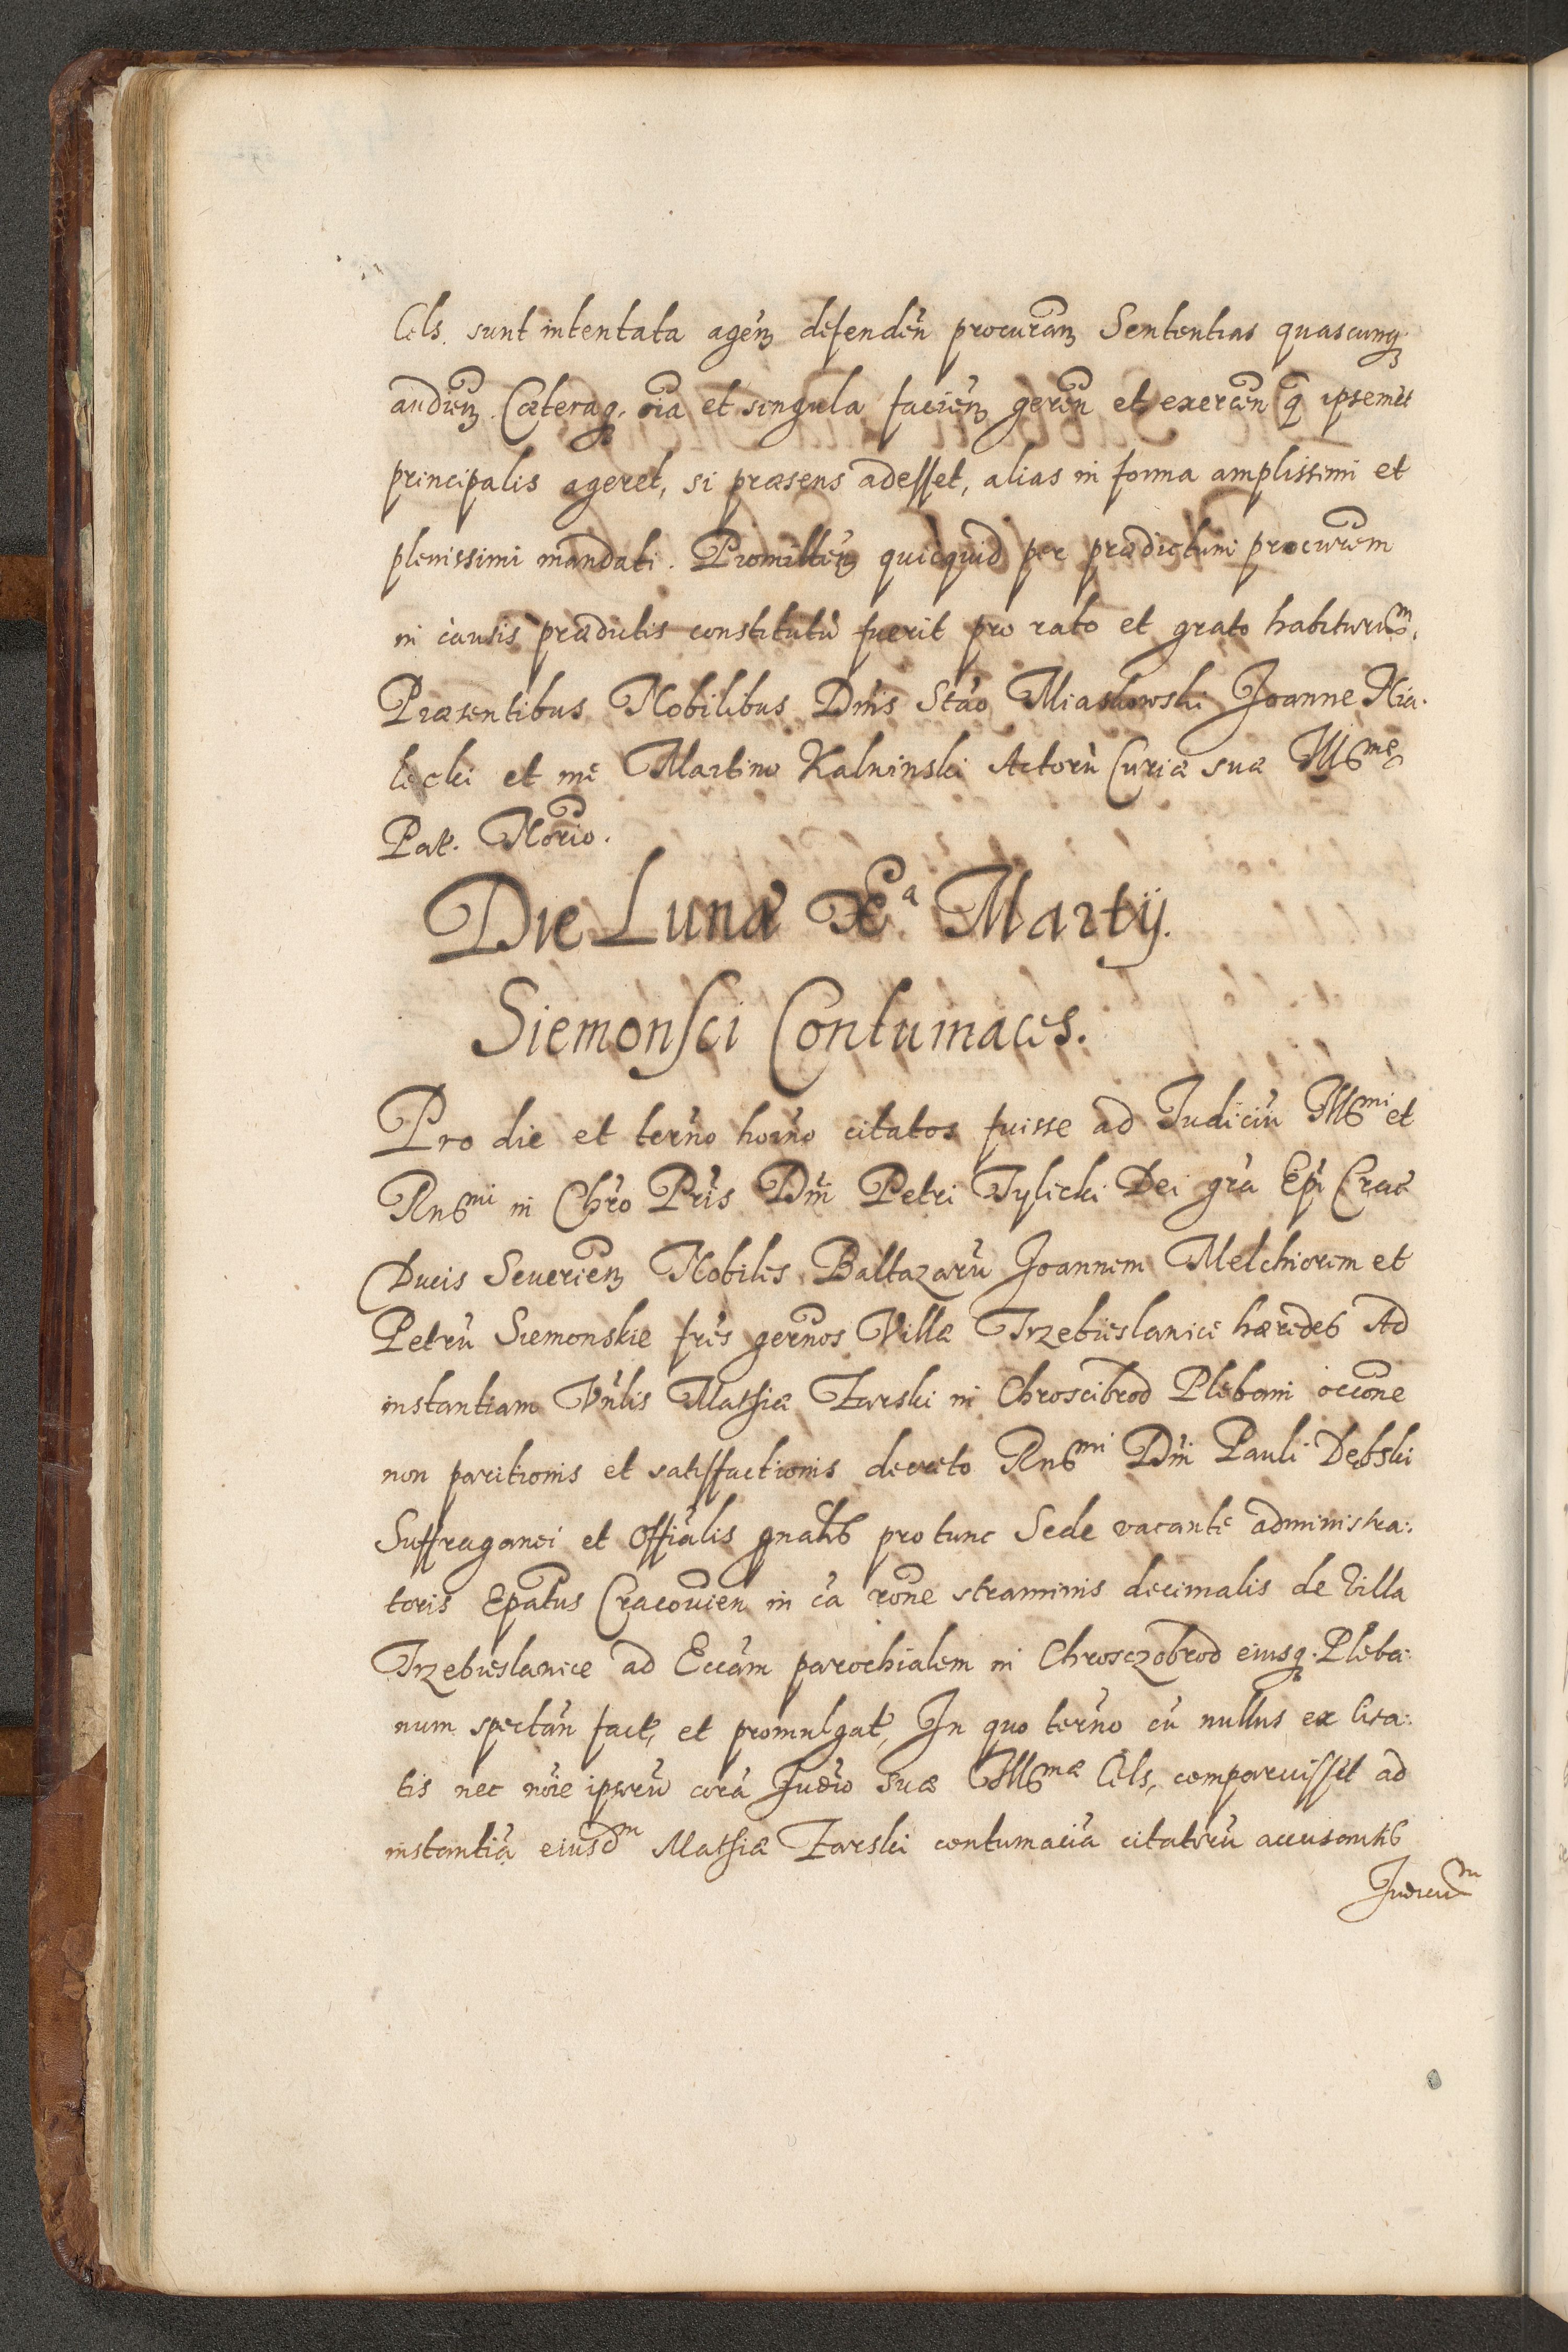 Cels. sunt intentata ageń defendeń procurań Sententias quascunq
audień. Cæteraq. oīa et singula facień gereń et exerceń q̄ ipsemet
principalis ageret, si præsens adesset, alias in forma amplissimi et
plenissimi mandati. Promitteń quicquid per prædictum procurem
in causis prædictis constitutū fuerit pro rato et grato habiturum.
Præsentibus Nobilibus Dnis Stāo Miaskowski Joanne
lecki et me Martino Kalninski Actorū Curiæ suæ Illmæ
Pat. Norio.
Die Lunæ Xa Martij.
Siemonsci Contumaces.
Pro die et terno horno citatos fuisse ad Judiciū Illmi et
Rndmi in Chro Pris Dni Petri Tylicki Dei gra Epi Crac
Ducis Severień Nobiles Baltazarū Joannem Melchiorem et
Petrū Siemonskie frēs gernos Villæ Trzebieslanice hæredes Ad
instantiam Vnlis Mathiæ Zarski in Chroscibrod Plebani occōne
non paritionis et satisfactionis decreto Rndmi Dni Pauli Debski
Suffraganei et Offialis gnalis pro tunc Sede vacante administra:
toris Epatus Cracovień in cā rōne straminis decimalis de Villa
Trzebieslanice ad Eccām parochialem in Chrosczobrod eiusq. Pleba:
num spectań fact, et promulgat, In quo terno cū nullus ex Cita:
tis nec nōie ipsorū corā Judio suæ Illmæ Cels, comparuisset ad
instantiā eiusdm Mathiæ Zarski contumaciā citatorū accusantis
Judicium